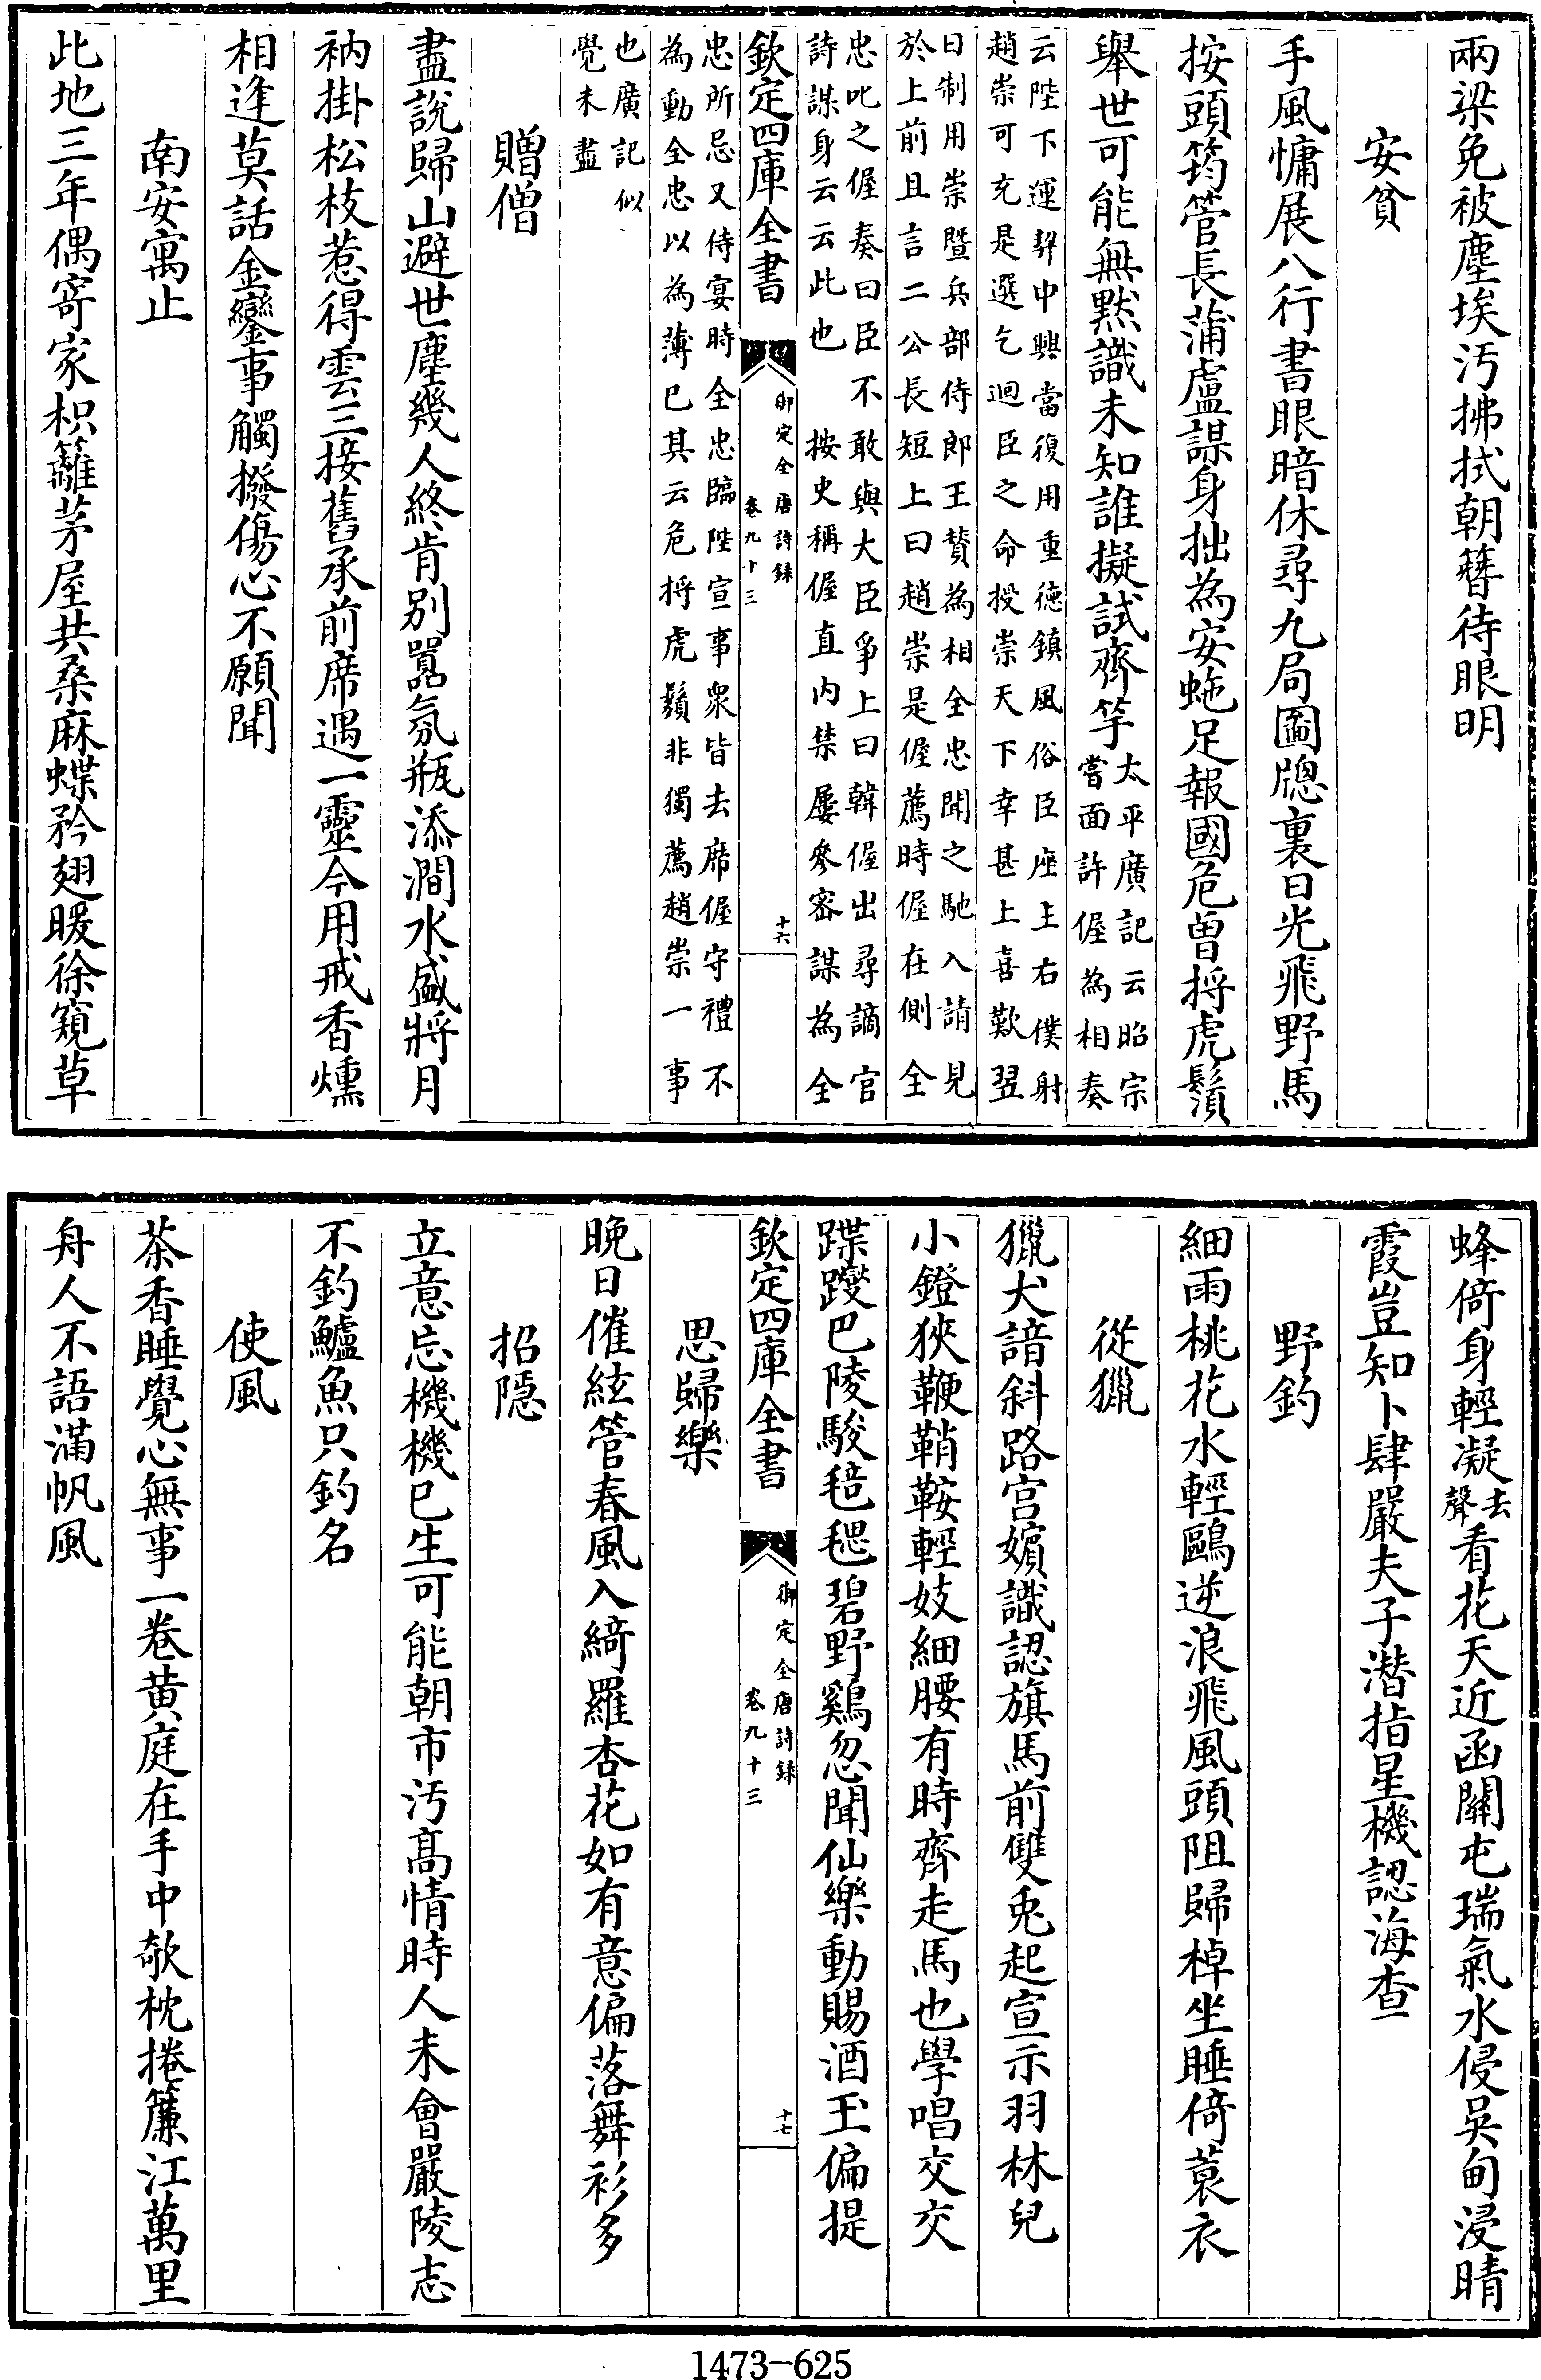 兩梁免被塵埃汚拂拭朝簪待眼明
安貧
手風慵展八行書眼暗休尋九局圖牕裏日光飛野馬
按頭筠管長蒲盧謀身拙為安蛇足報國危曽捋虎鬚
舉世可能無默識未知誰擬試齊竽太平廣記云昭宗
嘗面許偓為相奏
云陛下運契中興當復用重徳鎮風俗臣座主右僕射
趙崇可充是選乞迴臣之命授崇天下幸甚上喜歎翌
日制用崇暨兵部侍郎王賛為相全忠聞之馳入請見
於上前且言二公長短上曰趙崇是偓薦時偓在側全
忠叱之偓奏曰臣不敢與大臣爭上曰韓偓出尋謫官
詩謀身云云此也　按史稱偓直内禁屢參密謀為全
欽定四庫全書
御定全唐詩録
卷九十三
十六
忠所忌又侍宴時全忠臨陛宣事衆皆去席偓守禮不
為動全忠以為薄已其云危捋虎鬚非獨薦趙崇一事
也廣記似
覺未盡
贈僧
盡說歸山避世塵幾人終肯别囂氛瓶添澗水盛將月
衲掛松枝惹得雲三接舊承前席遇一靈今用戒香燻
相逢莫話金鑾事觸撥傷心不願聞
南安寓止
此地三年偶寄家枳籬茅屋共桑麻蝶矜翅暖徐窺草
蜂倚身輕凝去
聲看花天近函關屯瑞氣水侵吳甸浸晴
霞豈知卜肆嚴夫子潛指星機認海查
野釣
細雨桃花水輕鷗逆浪飛風頭阻歸棹坐睡倚蓑衣
從獵
獵犬諳斜路宫嬪識認旗馬前雙兎起宣示羽林兒
小鐙狹鞭鞘鞍輕妓細腰有時齊走馬也學唱交交
蹀躞巴陵駿毰毸碧野鷄忽聞仙樂動賜酒玉偏提
欽定四庫全書
御定全唐詩録
卷九十三
十七
思歸樂
晩日催絃管春風入綺羅杏花如有意偏落舞衫多
招隠
立意忘機機已生可能朝市汚髙情時人未會嚴陵志
不釣鱸魚只釣名
使風
茶香睡覺心無事一卷黄庭在手中欹枕捲簾江萬里
舟人不語滿帆風
1473-625